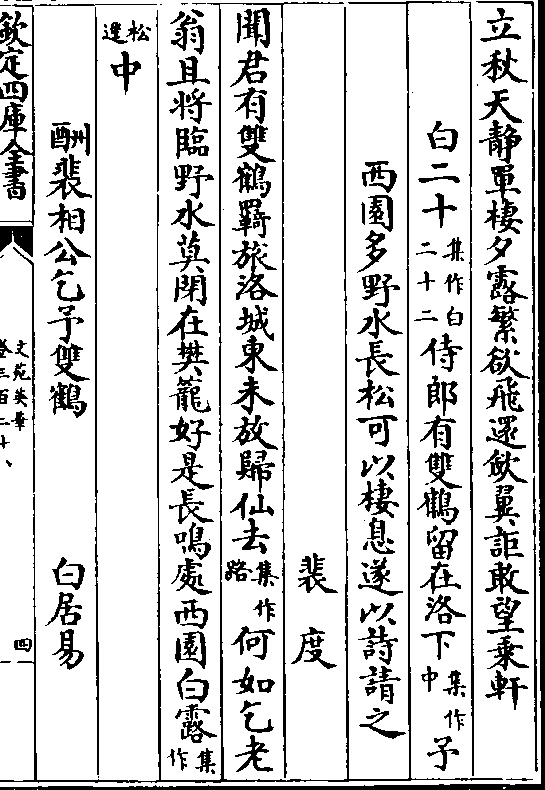 立秋天靜單棲夕露繁欲飛還斂翼詎敢望乗軒
白二十集作白二十二侍郎有雙鶴留在洛下集作中予
西園多野水長松可以棲息遂以詩請之
裴度
聞君有雙鶴羇旅洛城東未放歸仙去集作路何如乞老
翁且將臨野水莫閉在樊籠好是長鳴處西園白露集作
松邊中
酬裴相公乞予雙鶴 白居易
欽定四庫全書
文苑英華
卷三百二十八
四